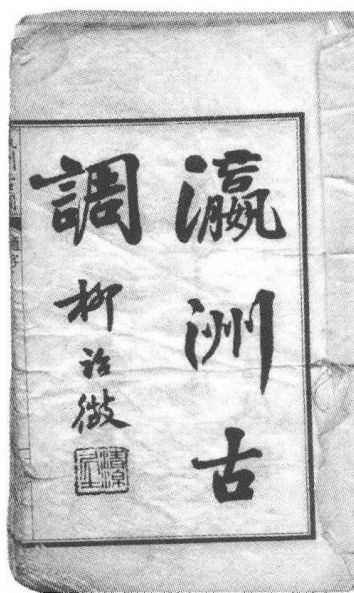 瀛洲古
調
柳詒徵